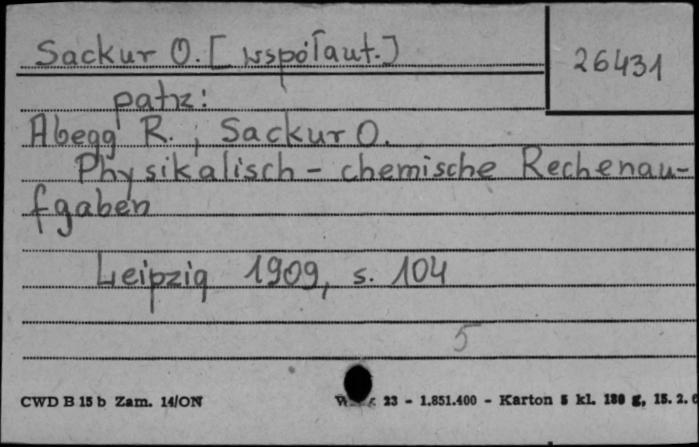 Sackur O. [współaut.]
26431
patrz:
Abegg R. ; Sackur O.
Physikalisch - chemische Rechenau-
fgaben
Leipzig 1909, s. 104
5
CWD B 15 b Zam. 14/ON
23 - 1.851.400 - Karton 5 kl. 180 g, 15. 2. 6